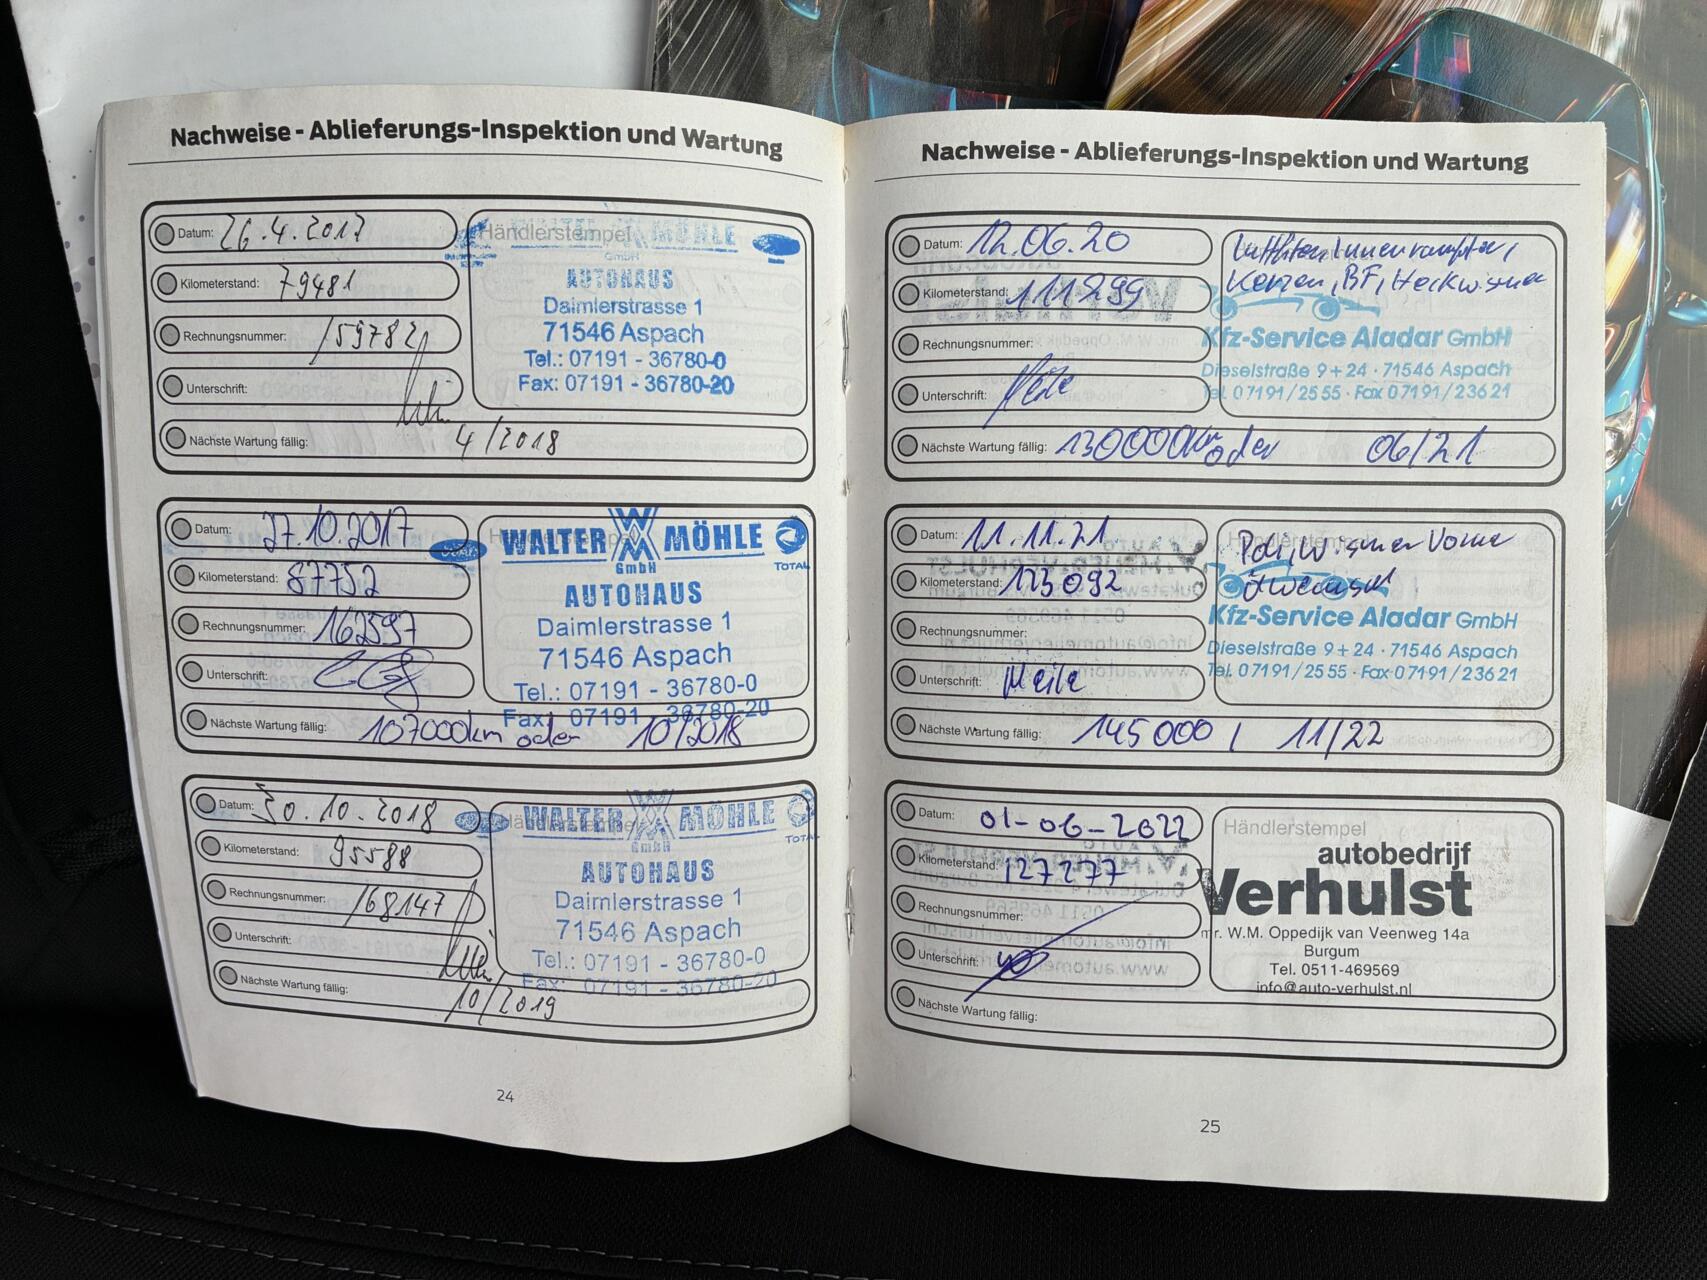 Nachweise - Ablieferungs-Inspektion und Wartung
Datum: 26.4.2017
Kilometerstand: 79481
Rechnungsnummer: 159782
Unterschrift:
Nächste Wartung fällig: 4/2018
Händlerstempel
WALTER MÖHLE
GmbH
AUTOHAUS
Daimlerstrasse 1
71546 Aspach
Tel.: 07191 - 36780-0
Fax: 07191 - 36780-20
Datum: 27.10.2017
Kilometerstand: 87752
Rechnungsnummer: 162597
Unterschrift:
Nächste Wartung fällig: 107000km oder 10/2018
WALTER MÖHLE
GmbH
TOTAL
AUTOHAUS
Daimlerstrasse 1
71546 Aspach
Tel.: 07191 - 36780-0
Fax: 07191 - 36780-20
Datum: 30.10.2018
Kilometerstand: 95588
Rechnungsnummer: 168147
Unterschrift:
Nächste Wartung fällig: 10/2019
Händlerstempel
WALTER MÖHLE
GmbH
TOTAL
AUTOHAUS
Daimlerstrasse 1
71546 Aspach
Tel.: 07191 - 36780-0
Fax: 07191 - 36780-20
24
Nachweise - Ablieferungs-Inspektion und Wartung
Datum: 12.06.20
Kilometerstand: 111299
Rechnungsnummer:
Unterschrift:
Nächste Wartung fällig: 130000km oder 06/21
Kerzen, BF, Heckwischer
Kfz-Service Aladar GmbH
Dieselstraße 9+24 · 71546 Aspach
Tel. 07191/2555 · Fax 07191/23621
Datum: 11.11.21
Kilometerstand: 123092
Rechnungsnummer:
Unterschrift: Meile
Nächste Wartung fällig: 145000 / 11/22
Händlerstempel
Wischer Vorne
Ölwechsel
Kfz-Service Aladar GmbH
Dieselstraße 9+24 · 71546 Aspach
Tel. 07191/2555 · Fax 07191/23621
Datum: 01-06-2022
Kilometerstand: 127277
Rechnungsnummer:
Unterschrift:
Nächste Wartung fällig:
Händlerstempel
autobedrijf
Verhulst
mr. W.M. Oppedijk van Veenweg 14a
Burgum
Tel. 0511-469569
info@auto-verhulst.nl
25